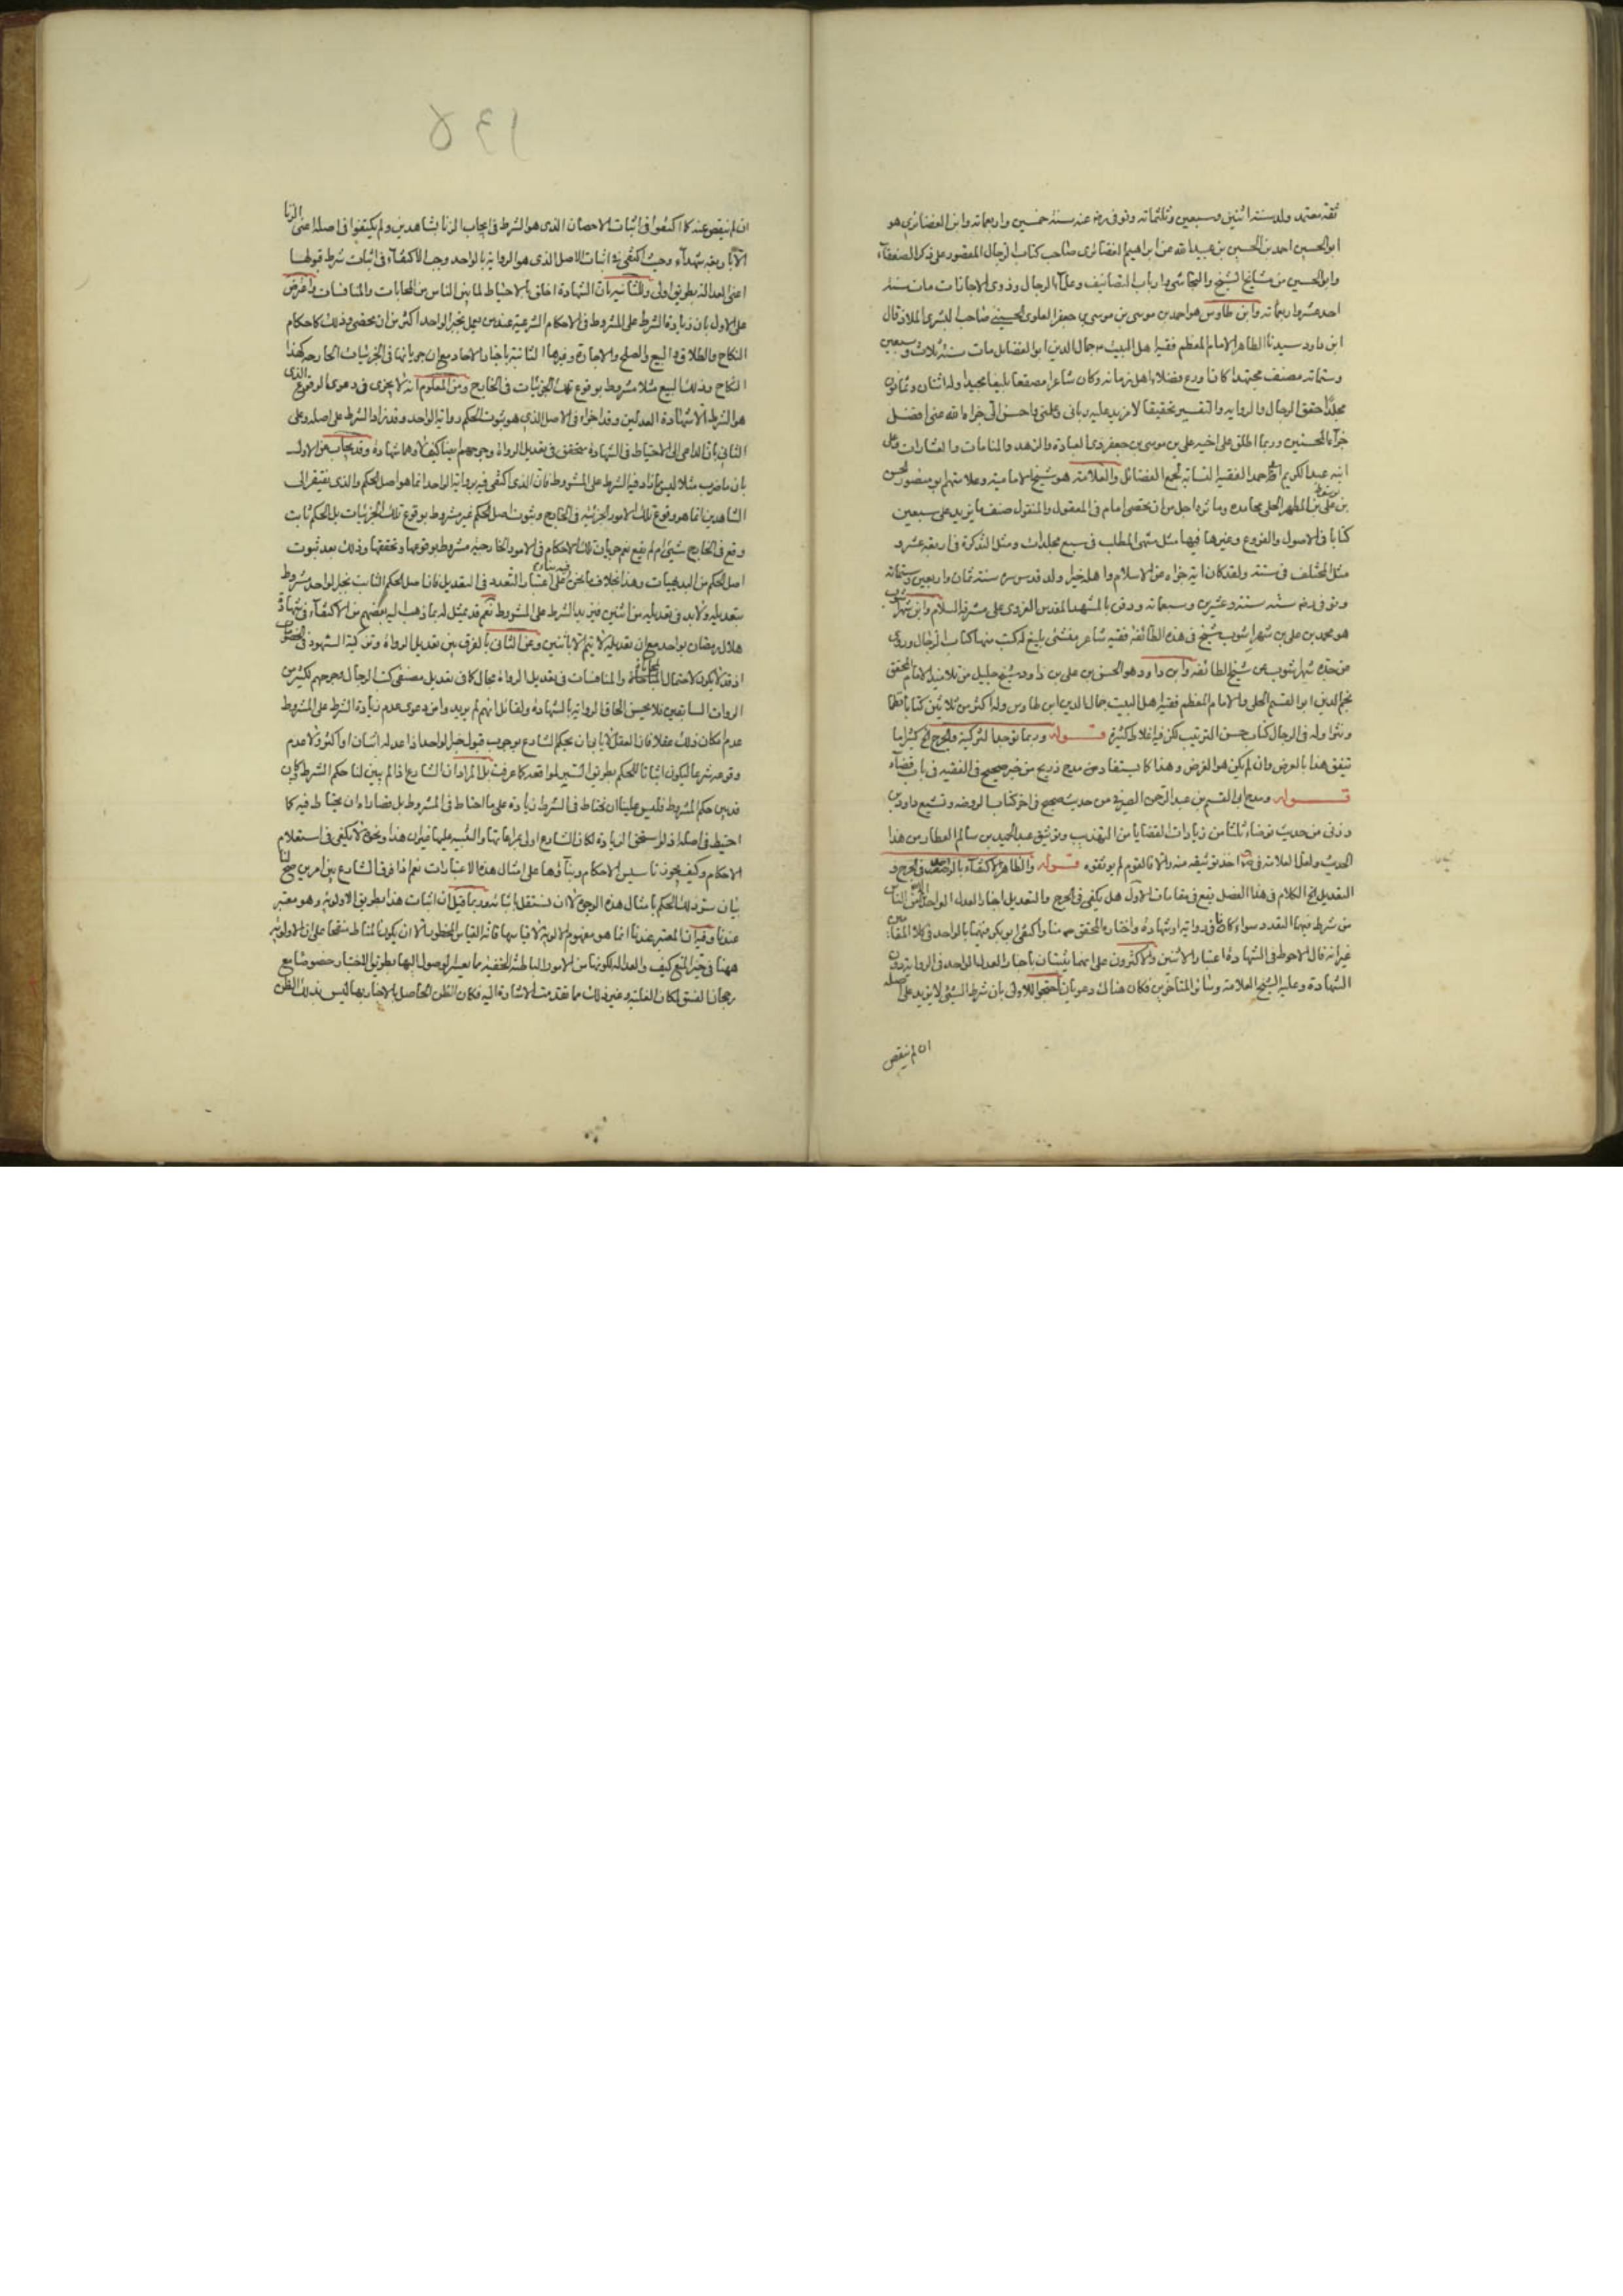 ثقة معتمد ولد سنة اثنتين وسبعين وثلثمائه وتوفى رضي عنه سنة خمسين واربعمائه وابن الغضائري هو
ابو الحسين احمد بن الحسين بن عبيد الله بن ابراهيم الغضائرى صاحب كتاب الرجال المقصور على ذكر الضعفاء
وابو الحسين من مشايخ الشيخ والنجاشي وارباب التصانيف وعلماء الرجال وذوى الاجازات مات سنة
احد عشر واربعمائه وابن طاوس هو احمد بن موسى بن موسى بن جعفر العلوى الحسيني صاحب البشرى الملاذ قال
ابن داود سيدنا الطاهر الامام المعظم فقيه اهل البيت جمال الدين ابو الفضايل مات سنة ثلاث وسبعين
وستمائه مصنف مجتهد كان اورع فضلاء اهل زمانه وكان شاعرا مصقعا بليغا مجيدا وله اثنان وثمانون
مجلدا حقق الرجال والرواية والتفسير تحقيقا لا مزيد عليه رباني وعلمني واحسن الى جزاه الله عني افضل
جزاء المحسنين وربما اطلق على اخيه علي بن موسى بن جعفر ذى العبادة والزهد والمنامات والبشارات وعلى
ابنه عبد الكريم بن احمد الفقيه النسابة مجمع الفضائل والعلامة هو شيخ الامامية وعلامتهم ابو منصور الحسن
بن يوسف بن علي بن المطهر الحلي محامده وماثره اجل من ان تحصى امام في المعقول والمنقول صنف ما يزيد على سبعين
كتابا في الاصول والفروع وغيرها فيها مثل منتهى المطلب في سبع مجلدات ومثل التذكرة في اربعة عشر و
مثل المختلف في ستة ولقد كان اية جزاه عن الاسلام واهله خيرا ولد قدس سره سنة ثمان واربعين وستمائه
وتوفى رضي سنة ستة وعشرين وسبعمائه ودفن بالمشهد المقدس الغروى على مشرفه السلام وابن شهراشوب
هو محمد بن علي بن شهراشوب شيخ في هذه الطائفة فقيه شاعر منشئ بليغ له كتب منها كتاب الرجال وروى
عن جده شهراشوب عن شيخ الطائفة وابن داود هو الحسن بن علي بن داود شيخ جليل من تلاميذ الامام المحقق
نجم الدين ابو القسم الحلي والامام المعظم فقيه اهل البيت جمال الدين ابن طاوس وله اكثر من ثلاثين كتابا نظما
ونثرا وله في الرجال كتاب حسن الترتيب لكن فيه اغلاط كثيرة قوله وربما توجد التزكية والجرح الخ كثيرا ما
تتفق هذا بالعرض وان لم يكن هو الغرض وهذا كما يستفاد من مدح ذريح من خبر صحيح في الفقيه في باب قضاء
قوله ومدح ابي القسم بن عبد الرحمن الصيرفي من حديث صحيح في اخر كتاب الروضة وتشيع داود بن
الحديث ولعل العلامة في اخذ توثيقه منه والا فالقوم لم يوثقوه قوله والظاهر الاكتفاء بالواحد في الجرح و
التعديل الخ الكلام في هذا الفصل يقع في مقامات الاول هل يكفي في الجرح والتعديل اخبار العدل الواحد من الناس
من شرط فيهما التعدد سواء كان في رواية او شهادة واختاره المحقق منا واكتفى ابو بكر فيهما بالواحد في كلا المقامين
غير انه قال الاحوط في الشهادة اعتبار الاثنين والاكثرون على انهما يثبتان باخبار العدل الواحد في الرواية دون
الشهادة وعليه الشيخ العلامة وسائر المتاخرين فكان هناك دعويان احتجوا للاولى بان شرط الشيء لا يزيد على اصله
ان لم ينقص
١٣٥
ان لم ينقص عنه كما اكتفوا في اثبات الاحصان الذى هو الشرط في ايجاب الزنا بشاهدين ولم يكتفوا في اصله اعنى الزنا
الا باربعة شهداء وحيث اكتفى في اثبات الاصل الذى هو الرواية بالواحد وجب الاكتفاء في اثبات شرط قبولها
اعنى العدالة بطريق اولى وللثانية بان الشهادة اخلق بالاحتياط لما بين الناس من المحابات والمنافسات واعترض
على الاول بان زيادة الشرط على المشروط في الاحكام الشرعية عند من يعمل بخبر الواحد اكثر من ان تحصى وذلك كاحكام
النكاح والطلاق والبيع والصلح والاجارة وغيرها الثابتة باخبار الاحاد مع ان جريانها في الجزئيات الخارجة كهذا
النكاح وذلك البيع مثلا مشروط بوقوع تلك الجزئيات في الخارج ومن المعلوم انه لا يجزى في دعوى الوقوع الذى
هو الشرط الا شهادة العدلين وقد اجزاه في الاصل الذي هو ثبوت الحكم رواية الواحد وقد زاد الشرط على اصله وعلى
الثاني بان الداعي الى الاحتياط في الشهادة متحقق في تعديل الرواة وجرحهم ايضا كيف لا وهما شهادة وقد يجاب عن الاول
بان ما ضرب مثلا ليس مما زاد فيه الشرط على المشروط فان الذى اكتفى فيه برواية الواحد انما هو اصل الحكم والذى يفتقر الى
الشاهدين انما هو وقوع تلك الامور الجزئية في الخارج وثبوت اصل الحكم غير مشروط بوقوع تلك الجزئيات بل الحكم ثابت
وقع في الخارج شيء ام لم يقع نعم جريان تلك الاحكام في الامور الخارجية مشروط بوقوعها وتحققها وذلك بعد ثبوت
اصل الحكم من البديهيات وهذا بخلاف ما نحن فيه بناء على اعتبار التعدد في التعديل فان اصل الحكم الثابت بخبر الواحد مشروط
بتعديله ولا بد في تعديله من اثنين فيزيد الشرط على المشروط نعم قد يمثل له بما ذهب اليه بعضهم من الاكتفاء في شهادة
هلال رمضان بواحد مع ان تعديله لا يتم الا باثنين وعن الثاني بالفرق بين تعديل الرواة وتزكية الشهود في الخصومات
اذ قد لا يكون لاحتمال المحابات والمنافسات في تعديل الرواة مجال كما في تعديل مصنفي كتب الرجال وجرحهم لكثير من
الروات السابقين فلا يحسن الحاق الرواية بالشهادة ولقائل انهم لم يريدوا من دعوى عدم زيادة الشرط على المشروط
عدم امكان ذلك عقلا فان العقل لا يابى ان يحكم الشارع بوجوب قبول خبر الواحد اذا عدله اثنان او اكثر ولا عدم
وقوعه شرعا ليكون اثباتا للحكم بطريق التتبع لمواقعه كما عرفت بل المراد ان الشارع اذا لم يبين لنا حكم الشرط وكان
قد بين حكم المشروط فليس علينا ان نحتاط في الشرط زيادة على ما احتاط في المشروط بل قصاراه ان يحتاط فيه كما
احتيط في اصله اذ لو استحق الزيادة لكان الشارع اولى بمراعاتها والتنبيه عليها فيه وان هذا ونحوه لا يكفي في استعلام
الاحكام وكيف يجوز تاسيس الاحكام وبناؤها على امثال هذه الاعتبارات نعم اذا فرق الشارع بين امرين صح لنا
بيان سر ذلك الحكم بامثال هذه الوجوه لا ان نستقل باثباته بعد بما قيل ان اثبات هذا بطريق الاولوية وهو معتبر
عندنا وفيه ان المعتبر عندنا انما هو مفهوم الاولوية لا قياسها فانه القياس المحظور الا ان يكون المناط منقحا على ان الاولوية
ههنا في حيز المنع كيف والعدالة لكونها من الامور الباطنة الخفية مما يعسر الوصول اليها بطريق الاختبار خصوصا مع
رجحان الفسق لمكان الغلبة وغير ذلك مما تقدمت الاشارة اليه فكان الظن الحاصل بالاخبار بها ليس بذلك الظن